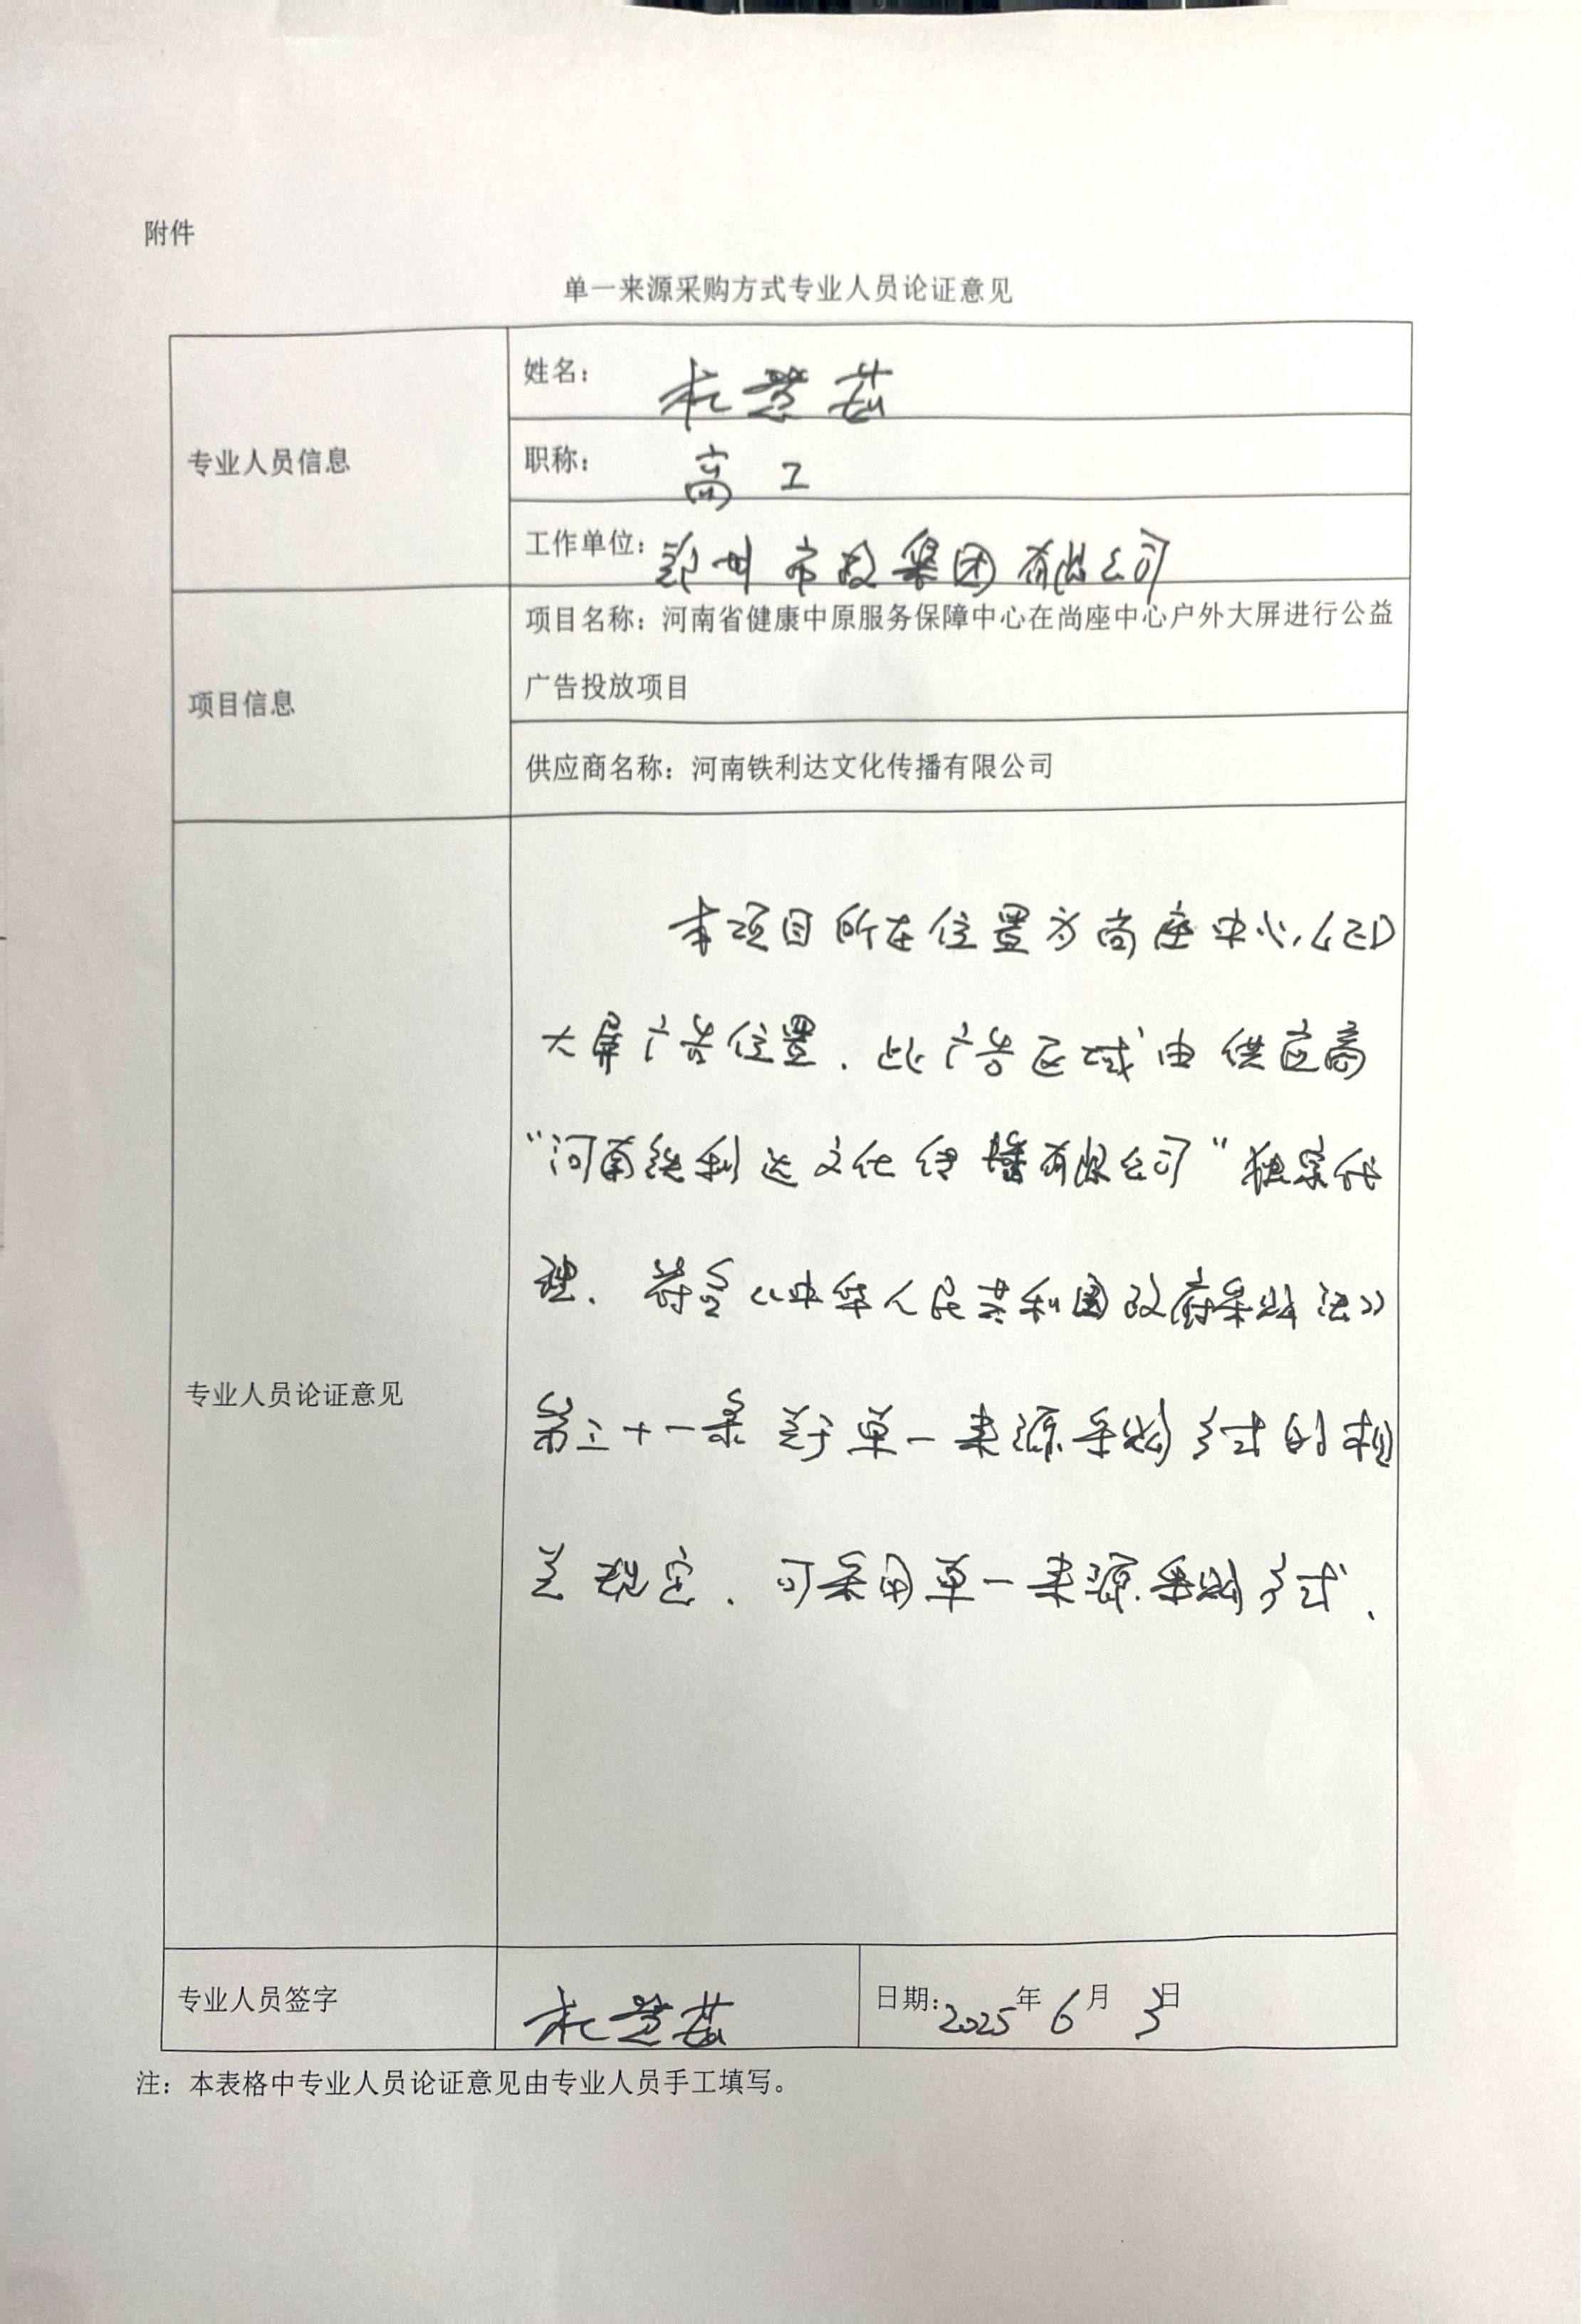 附件
单一来源采购方式专业人员论证意见
专业人员信息
姓名：杜慧茹
职称：高工
工作单位：郑州市政集团有限公司
项目信息
项目名称：河南省健康中原服务保障中心在尚座中心户外大屏进行公益
广告投放项目
供应商名称：河南铁利达文化传播有限公司
专业人员论证意见
本项目所在位置为尚座中心LED
大屏广告位置，此广告区域由供应商
“河南铁利达文化传播有限公司”独家代
理，符合《中华人民共和国政府采购法》
第三十一条关于单一来源采购方式的相
关规定，可采用单一来源采购方式。
专业人员签字
杜慧茹
日期：2025年6月3日
注：本表格中专业人员论证意见由专业人员手工填写。